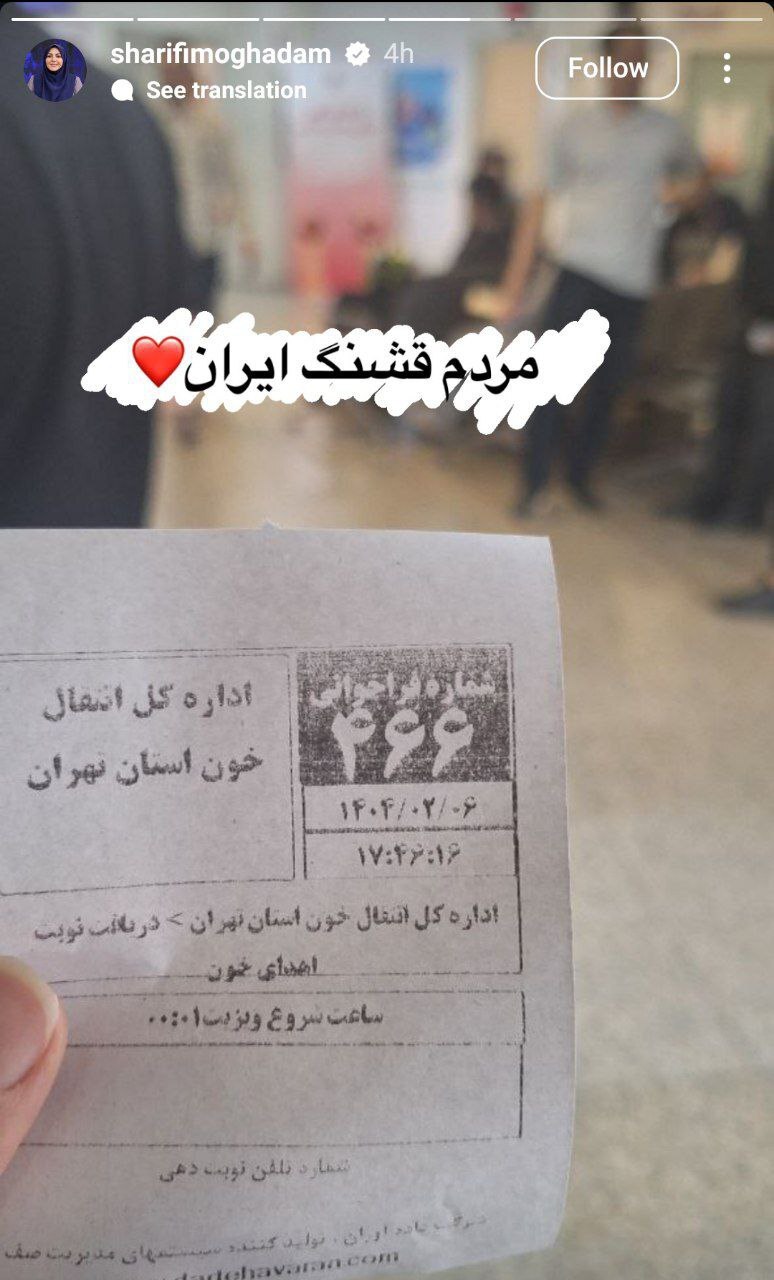 sharifimoghadam 4h
Follow
See translation
مردم قشنگ ایران❤️
شماره فراخوانی
۴۶۶
اداره کل انتقال
خون استان تهران
۱۴۰۴/۰۲/۰۶
۱۷:۴۶:۱۶
اداره کل انتقال خون استان تهران > دریافت نوبت
اهدای خون
ساعت شروع ویزیت۰۰:۰۱
شماره تلفن نوبت دهی
تولید کننده سیستمهای مدیریت صف